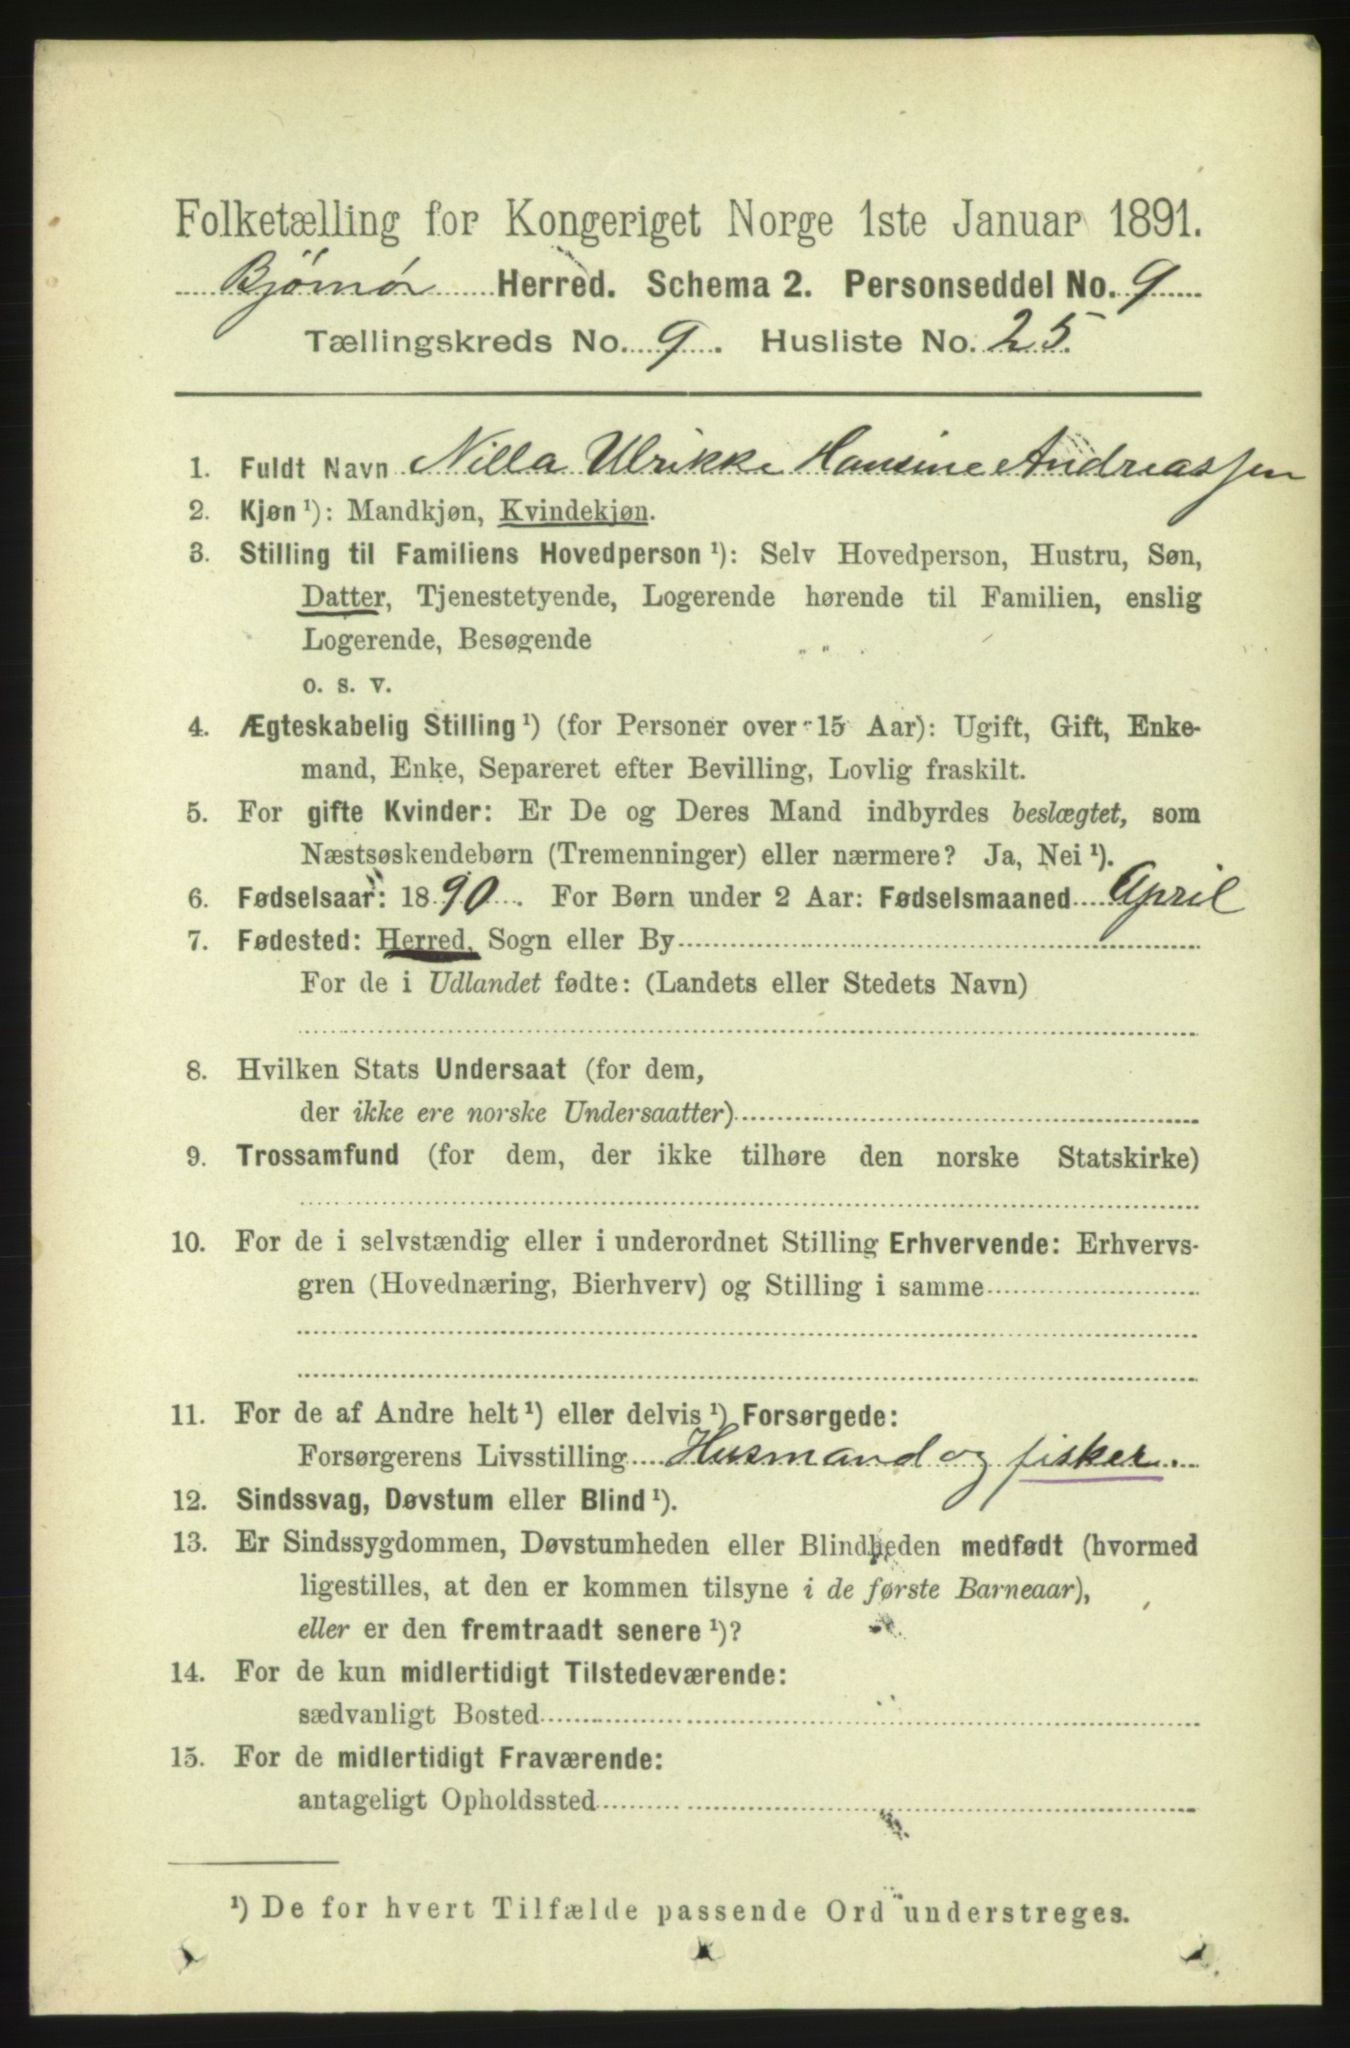 Folketælling for Kongeriget Norge 1ste Januar 1891.
Bjørnør Herred. Schema 2. Personseddel No. 9
Tællingskreds No. 9. Husliste No. 25.
1. Fuldt Navn Nilla Ulrikke Hansine Andreassen
2. Kjøn ¹): Mandkjøn, Kvindekjøn.
3. Stilling til Familiens Hovedperson ¹): Selv Hovedperson, Hustru, Søn,
Datter, Tjenestetyende, Logerende hørende til Familien, enslig
Logerende, Besøgende
o. s. v.
4. Ægteskabelig Stilling ¹) (for Personer over 15 Aar): Ugift, Gift, Enke-
mand, Enke, Separeret efter Bevilling, Lovlig fraskilt.
5. For gifte Kvinder: Er De og Deres Mand indbyrdes beslægtet, som
Næstsøskendebørn (Tremenninger) eller nærmere? Ja, Nei ¹).
6. Fødselsaar: 1890. For Børn under 2 Aar: Fødselsmaaned April
7. Fødested: Herred, Sogn eller By
For de i Udlandet fødte: (Landets eller Stedets Navn)
8. Hvilken Stats Undersaat (for dem,
der ikke ere norske Undersaatter)
9. Trossamfund (for dem, der ikke tilhøre den norske Statskirke)
10. For de i selvstændig eller i underordnet Stilling Erhvervende: Erhvervs-
gren (Hovednæring, Bierhverv) og Stilling i samme
11. For de af Andre helt ¹) eller delvis ¹) Forsørgede:
Forsørgerens Livsstilling Husmand og fisker.
12. Sindssvag, Døvstum eller Blind ¹).
13. Er Sindssygdommen, Døvstumheden eller Blindheden medfødt (hvormed
ligestilles, at den er kommen tilsyne i de første Barneaar),
eller er den fremtraadt senere ¹)?
14. For de kun midlertidigt Tilstedeværende:
sædvanligt Bosted
15. For de midlertidigt Fraværende:
antageligt Opholdssted
¹) De for hvert Tilfælde passende Ord understreges.